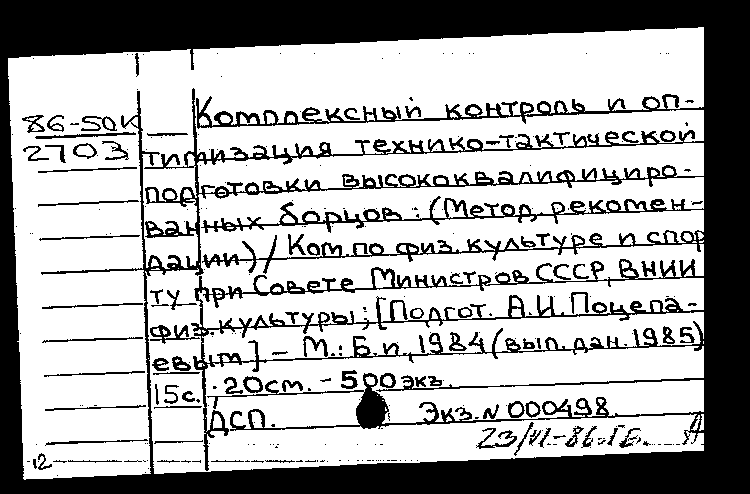 86-50к Комплексный контроль и оп-
2703 тимизация технико-тактической
подготовки высококвалифициро-
ванных борцов: (Метод, рекомен-
дации) / Ком. по физ. культуре и спор
ту при Совете Министров СССР, ВНИИ
физ. культуры; [Подгот. А.И. Поцела-
евым]. - М.: Б.и., 1984 (вып. дан. 1985)
15 с.; 20 см. - 500 экз.
ДСП. Экз. N 000498.
23/VI-86. ГБ. А
12